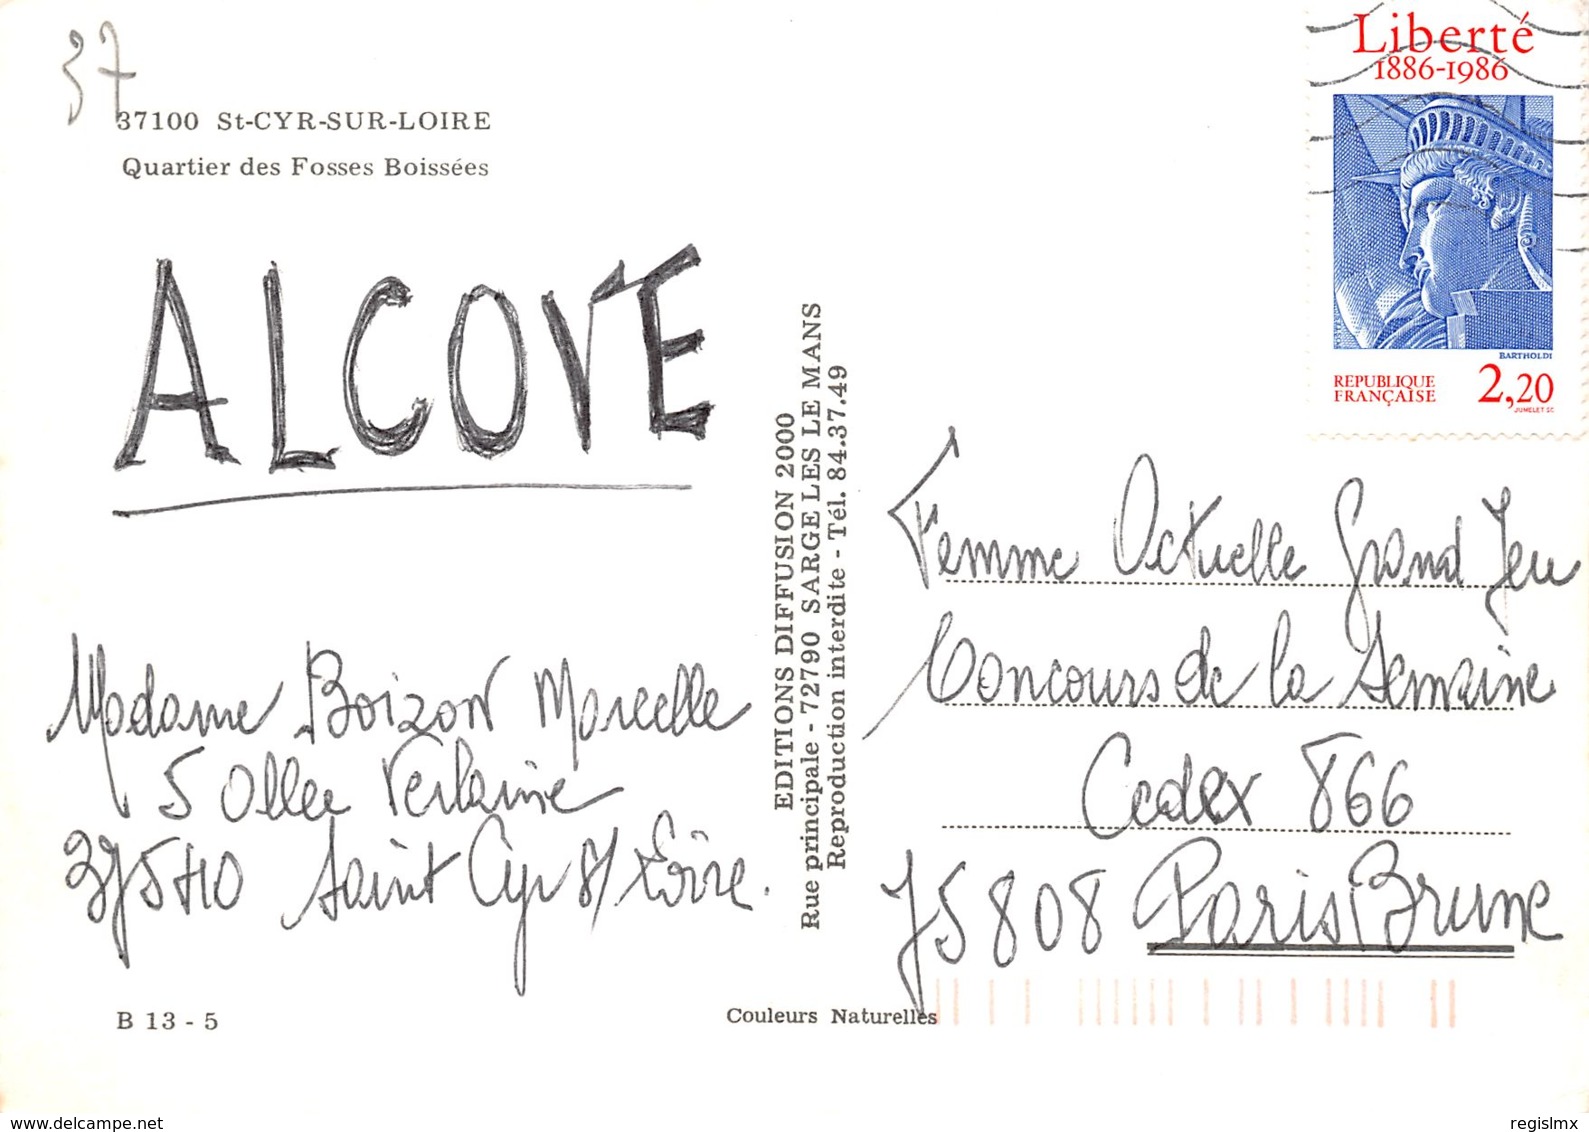 37
37100 St-CYR-SUR-LOIRE
Quartier des Fosses Boissées
ALCOVE
Madame Boizon Marcelle
5 Allee Verlaine
37540 Saint Cyr s/ Loire.
B 13 - 5
EDITIONS DIFFUSION 2000
Rue principale - 72790 SARGE LES LE MANS
Reproduction interdite - Tél. 84.37.49
Couleurs Naturelles
Liberté
1886-1986
BARTHOLDI
REPUBLIQUE
FRANÇAISE
2,20
JUMELET SC
Femme Actuelle Grand Jeu
Concours de la Semaine
Cedex 866
75808 Paris Brune
delcampe.net
regislmx